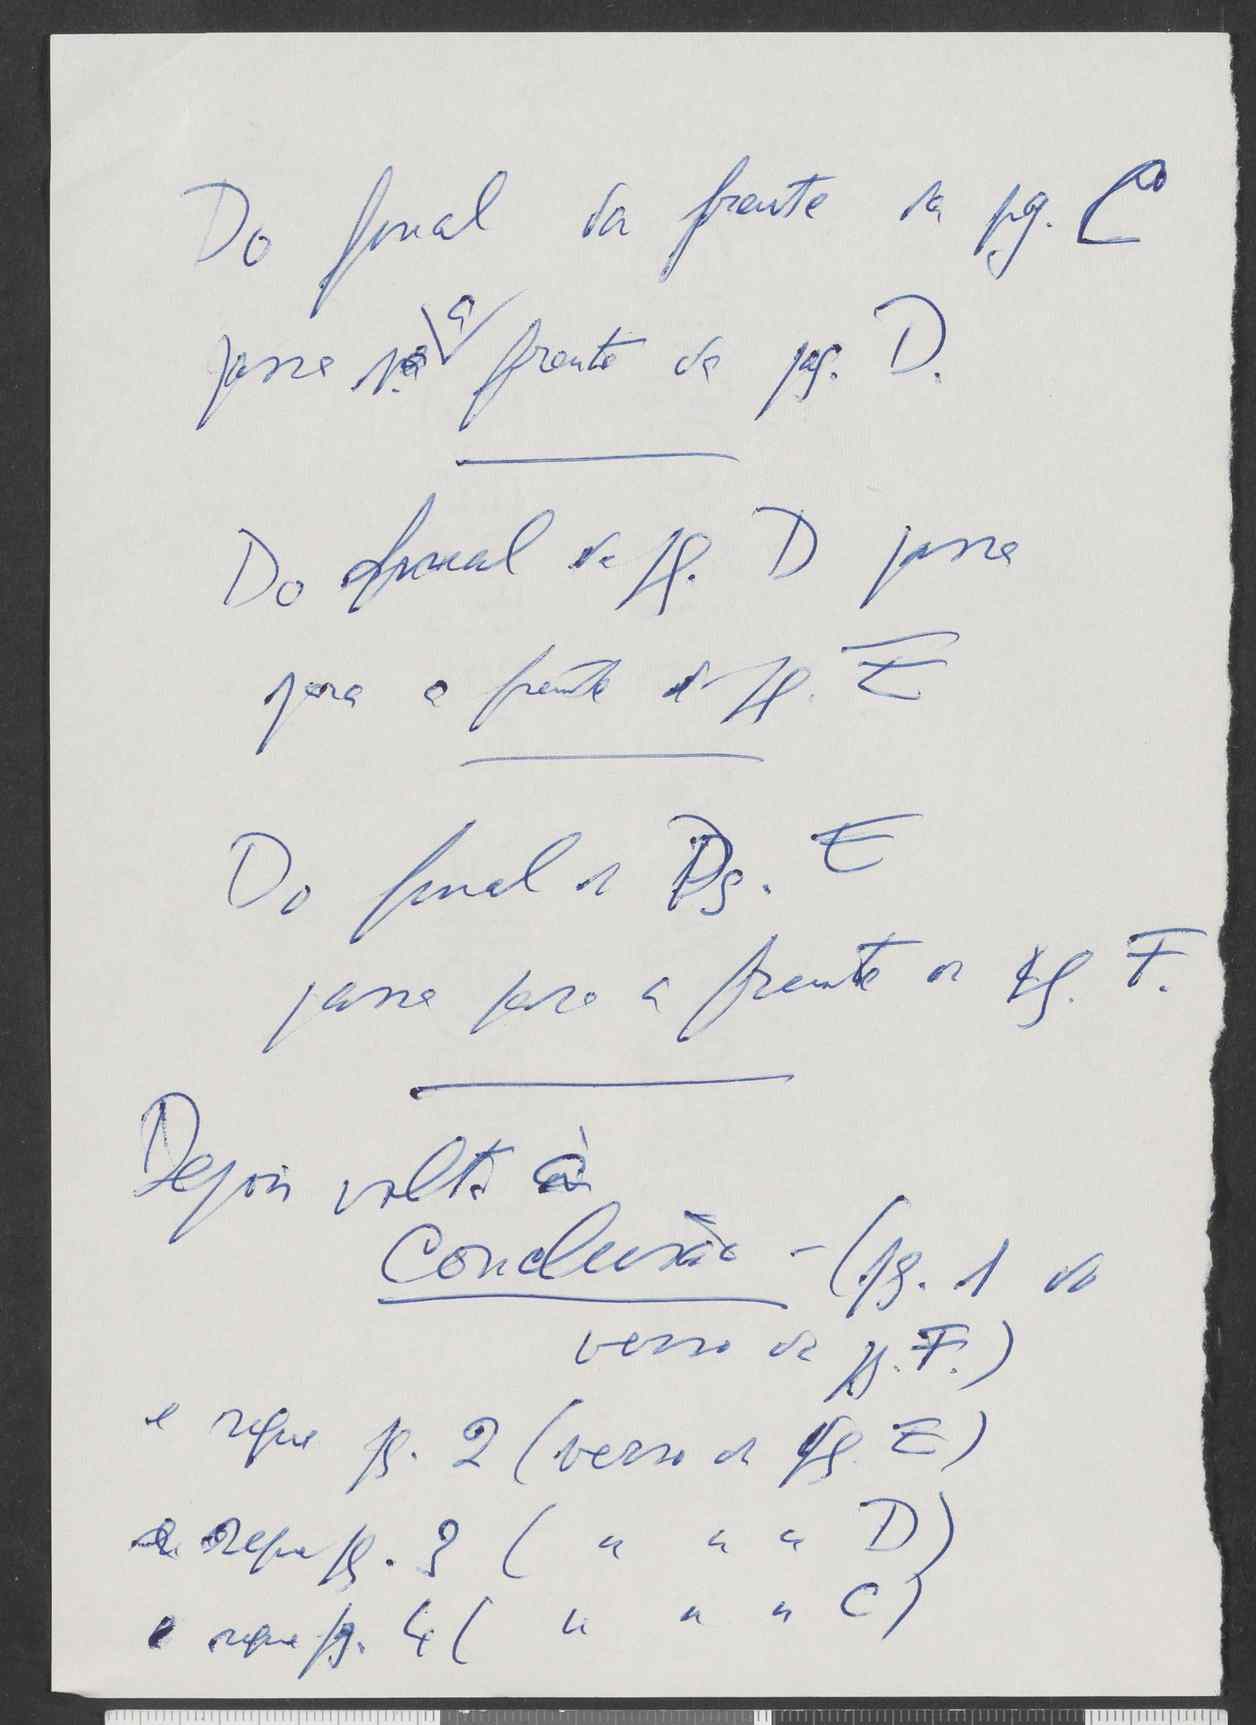 Do final da frente da pg. C
passe p.ª a frente da pg. D.
Do final da pg. D passe
para a frente da pg. E
Do final da Pg. E
passe para a frente da pg. F.
Depois volta à
Conclusão - (pg. 1 do
verso da pg. F.)
e segue pg. 2 (verso da pg. E)
e segue pg. 3 ( " " " D)
e segue pg. 4 ( " " " C)